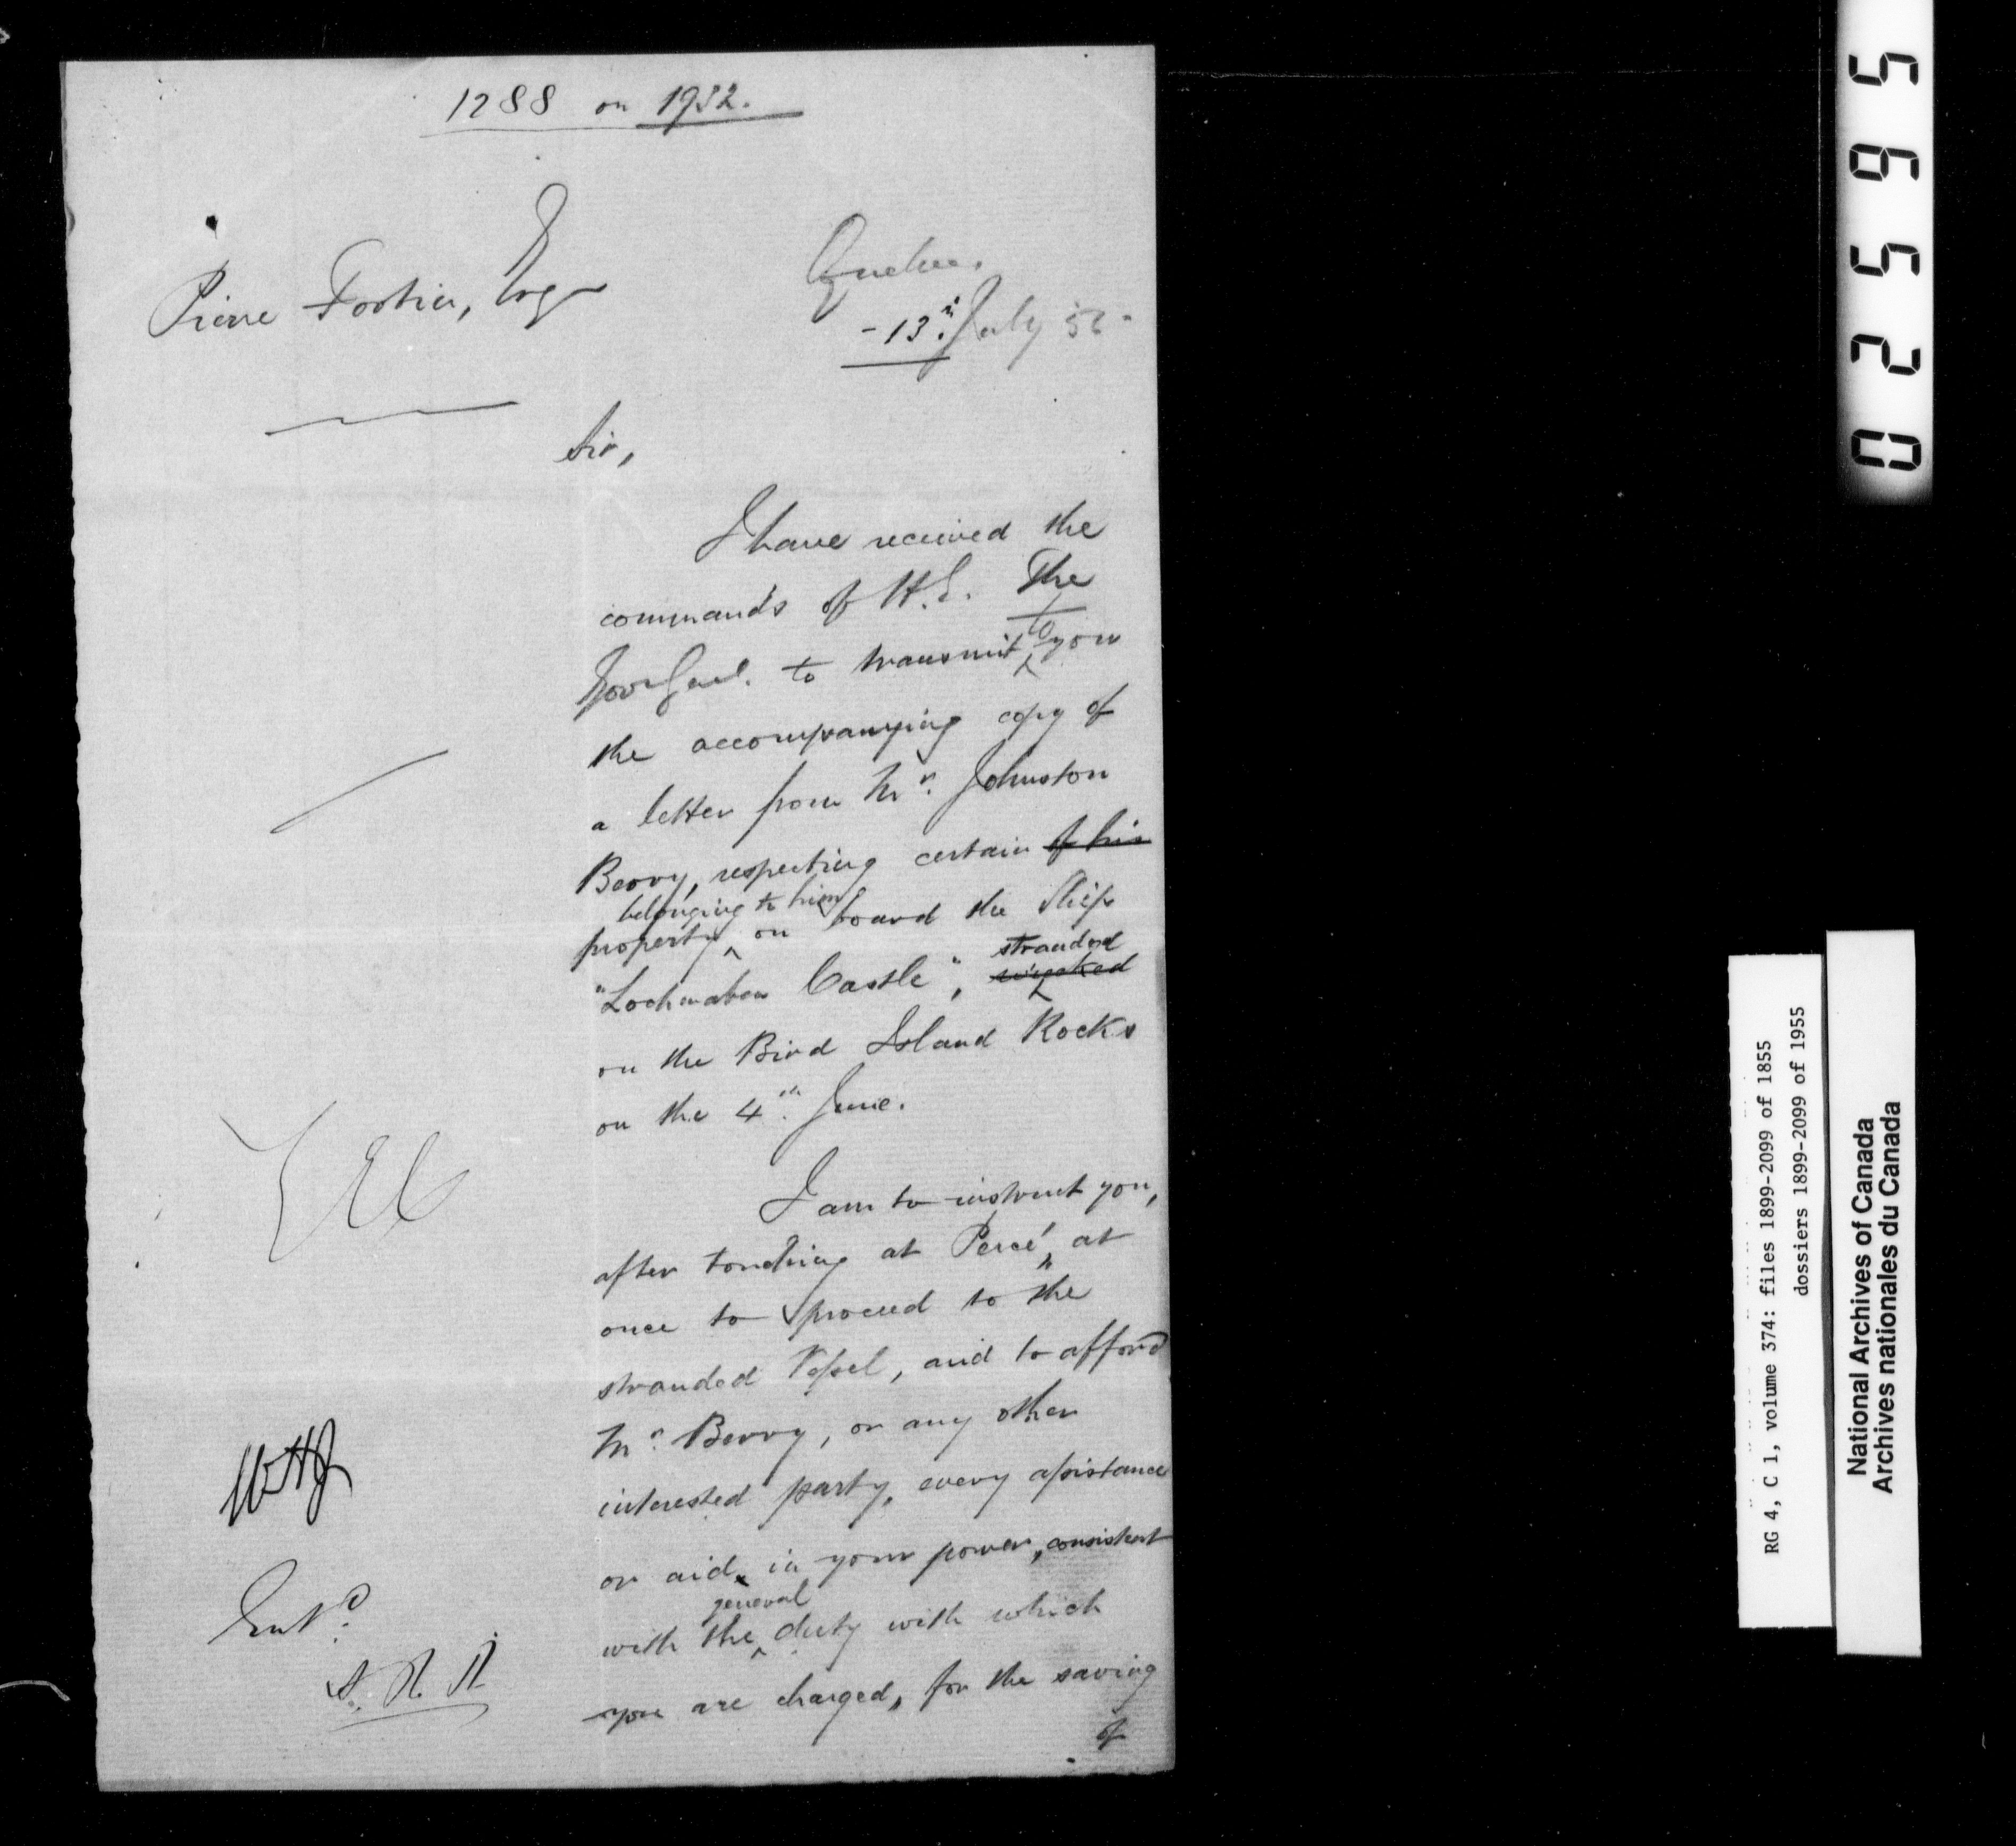 1288 on 1932.
Pierre Fortin, Esq
Quebec.
- 13th July 55 -
Sir,
I have received the
commands of H.E. The
Gov Genl. to transmit to you
the accompanying copy of
a letter from Mr. Johnston
Berry, respecting certain of his
property belonging to him on board the Ship
"Lochmaben Castle", wrecked stranded
on the Bird Island Rocks
on the 4th June.
I am to instruct you,
after touching at Percé, at
once to proceed to the
stranded Vessel, and to afford
Mr. Berry, or any other
interested party, every assistance
or aid, in your power, consistent
with the general duty with which
you are charged, for the saving
of
Entd.
025595
RG 4, C 1, volume 374: files 1899-2099 of 1855
dossiers 1899-2099 of 1955
National Archives of Canada
Archives nationales du Canada